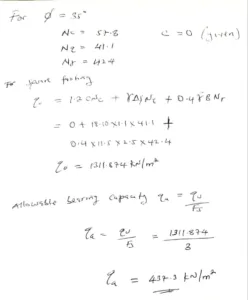 For ø = 35°
Nc = 57.8   C = 0 (given)
Nq = 41.1
Nγ = 42.4
For square footing
qu = 1.3 CNc + γDfNq + 0.4 γBNγ
= 0 + 18.10 × 1.1 × 41.1 +
0.4 × 11.5 × 2.5 × 42.4
qu = 1311.874 kN/m²
Allowable bearing capacity qa = qu/FS
qa = qu/FS = 1311.874/3
qa = 437.3 kN/m²